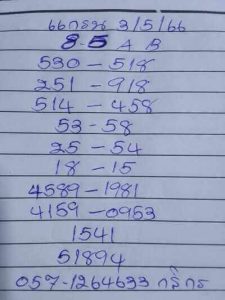 3/5/66
8-5 A B
530 - 518
251 - 918
514 - 458
53 - 58
25 - 54
18 - 15
4589 - 1981
4159 - 0953
1541
51894
057-1264633